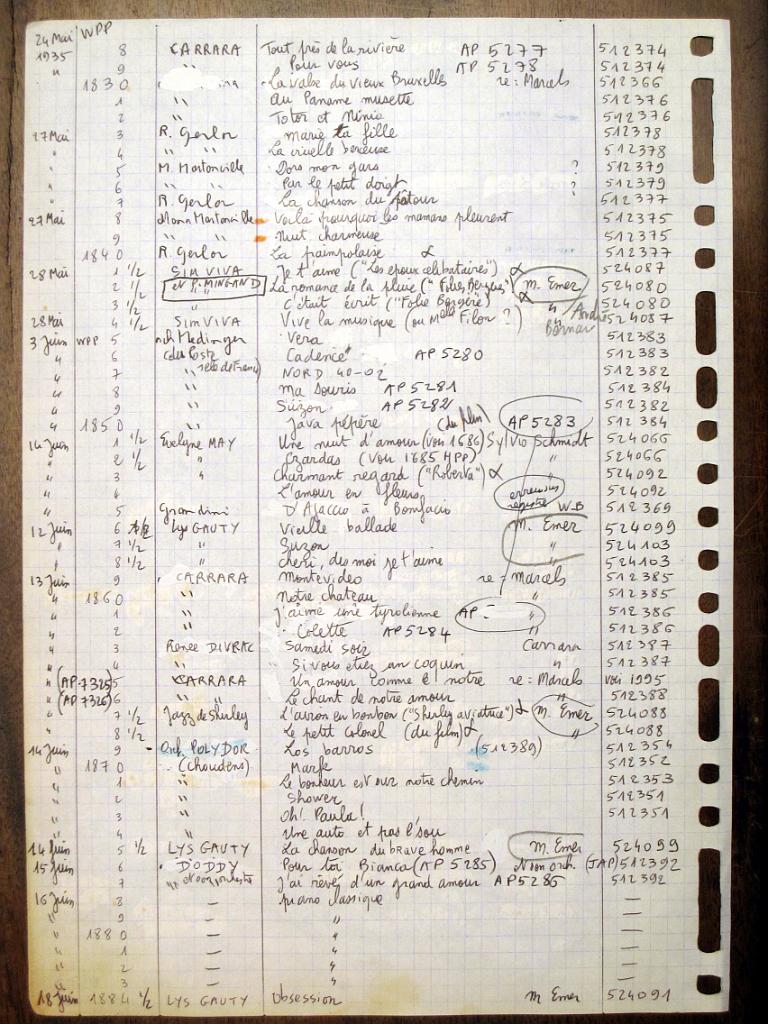 24 Mai WPP 8 CARRARA Tout près de la rivière AP 5277 512374
1935 9 " Pour vous AP 5278 512374
" 1830 La valse du vieux Bruxelles re: Marcels 512366
1 " Au Paname musette 512376
2 " Totor et Ninie 512376
27 Mai 3 R. Gerlor Marie ta fille 512378
" 4 " " La cruelle berceuse 512378
" 5 M. Martonville Dors mon gars ? 512379
" 6 " " Par le petit doigt ? 512379
" 7 R. Gerlor La chanson du pâtour 512377
27 Mai 8 Martonville Voilà pourquoi les mamans pleurent 512375
" 9 " " Nuit charmeuse 512375
1840 R. Gerlor La paimpolaise α 512377
28 Mai 1 1/2 SIM VIVA Je t'aime ("Les epoux celibataires") α 524087
" 2 1/2 et P. MINGAND La romance de la pluie ("Folies Bergère") M. Emer 524080
" 3 1/2 C'était écrit ("Folie Bergère") α " 524080
28 Mai 4 1/2 SIM VIVA Vive la musique (ou Melle Filon ?) André 524087
3 Juin WPP 5 Medinger Vera 512383
" 6 Cadence AP 5280 512383
" 7 " NORD 40-02 512382
" 8 " Ma souris AP 5281 512384
" 9 " Suzon AP 5282 512382
" 1850 " Java pépère (du film) AP 5283 512384
14 Juin 1 1/2 Evelyne MAY Une nuit d'amour (Voir 1686) Sylvio Schmidt 524066
" 2 1/2 " Czardas (Voir 1685 HPP) " 524066
" 3 " Charmant regard ("Roberta") α 524092
" 4 L'amour en fleurs 524092
" 5 Grandini D'Ajaccio à Bonifacio W-B 512369
12 Juin 6 1/2 Lys GAUTY Vieille ballade M. Emer 524099
" 7 1/2 " Suzon " 524103
" 8 1/2 " Cheri, dis moi je t'aime " 524103
13 Juin 9 CARRARA Montevideo re: Marcels 512385
" 1860 " Notre chateau " 512385
" 1 " J'aime une tyrolienne AP - " 512386
" 2 " Colette AP 5284 " 512386
" 3 Renée DIVRAC Samedi soir Carrara 512387
" 4 " Si vous étiez un coquin " 512387
" (AP 7325) 5 CARRARA Un amour comme le notre re: Marcels voir 1995
" (AP 7326) 6 " Le chant de notre amour " 512388
" 7 1/2 Jazz de Shirley L'avion en bonbon ("Shirley aviatrice") α M. Emer 524088
" 8 1/2 " Le petit colonel (du film) α " 524088
14 Juin 9 Orch POLYDOR Los barros (512389) 512354
" 1870 (Choudens) Marfe 512352
" 1 " Le bonheur est sur notre chemin 512353
" 2 " Shower 512351
" 3 " Oh! Paula! 512351
" 4 " Une auto et pas l'sou
14 Juin 5 1/2 LYS GAUTY La chanson du brave homme M. Emer 524099
15 Juin 6 D'ODDY Pour toi Bianca (AP 5285) et son orch. (JAP) 512392
" 7 " et son orchestre J'ai rêvé d'un grand amour AP 5286 512392
16 Juin 8 — piano classique —
" 9 — " —
" 1880 — " —
" 1 — " —
" 2 — " —
" 3 — " —
18 Juin 1884 1/2 LYS GAUTY Obsession M Emer 524091